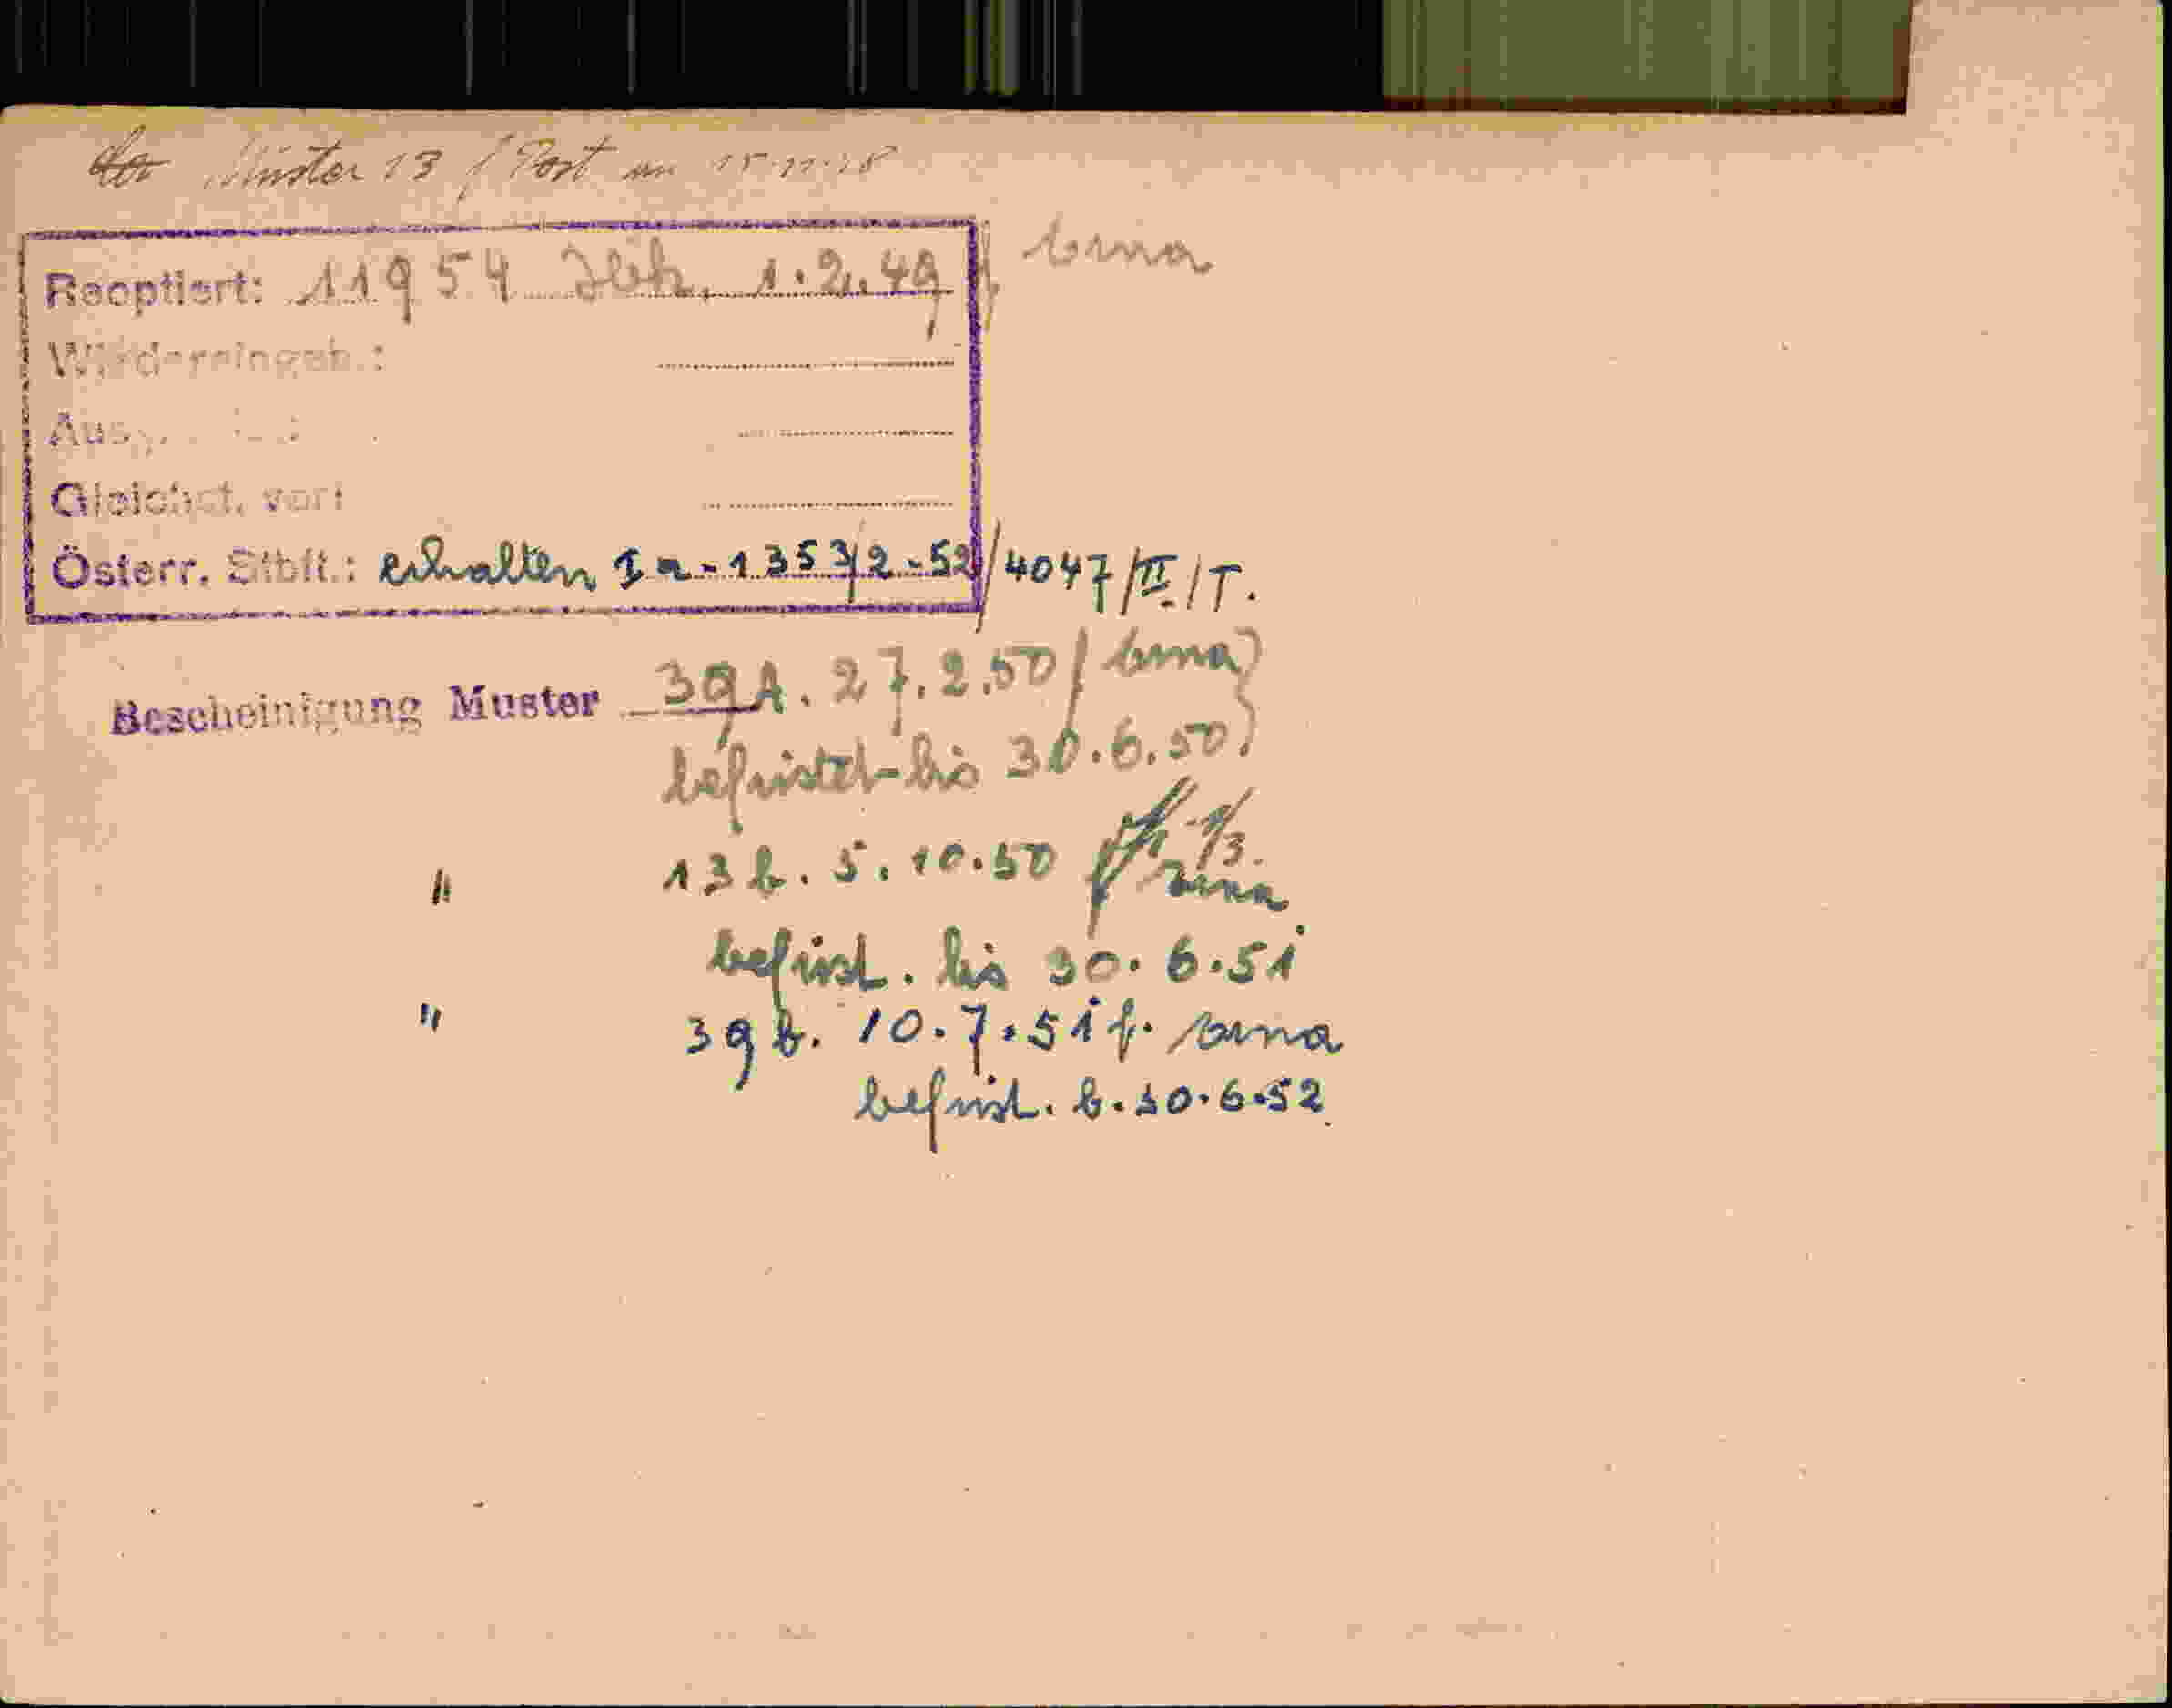 Muster 13 / Post am 15.11.48
Reoptiert: 11954 1.2.49
Wiedereingeb.:
Gleichst. vor:
Österr. Stbft.: erhalten Ia-1353/2-52/4047/II/T.
Bescheinigung Muster 39 A. 27.2.50
befristet bis 30.6.50
" 13 b. 5.10.50
befrist. bis 30.6.51
" 39 b. 10.7.51
befrist. b. 30.6.52